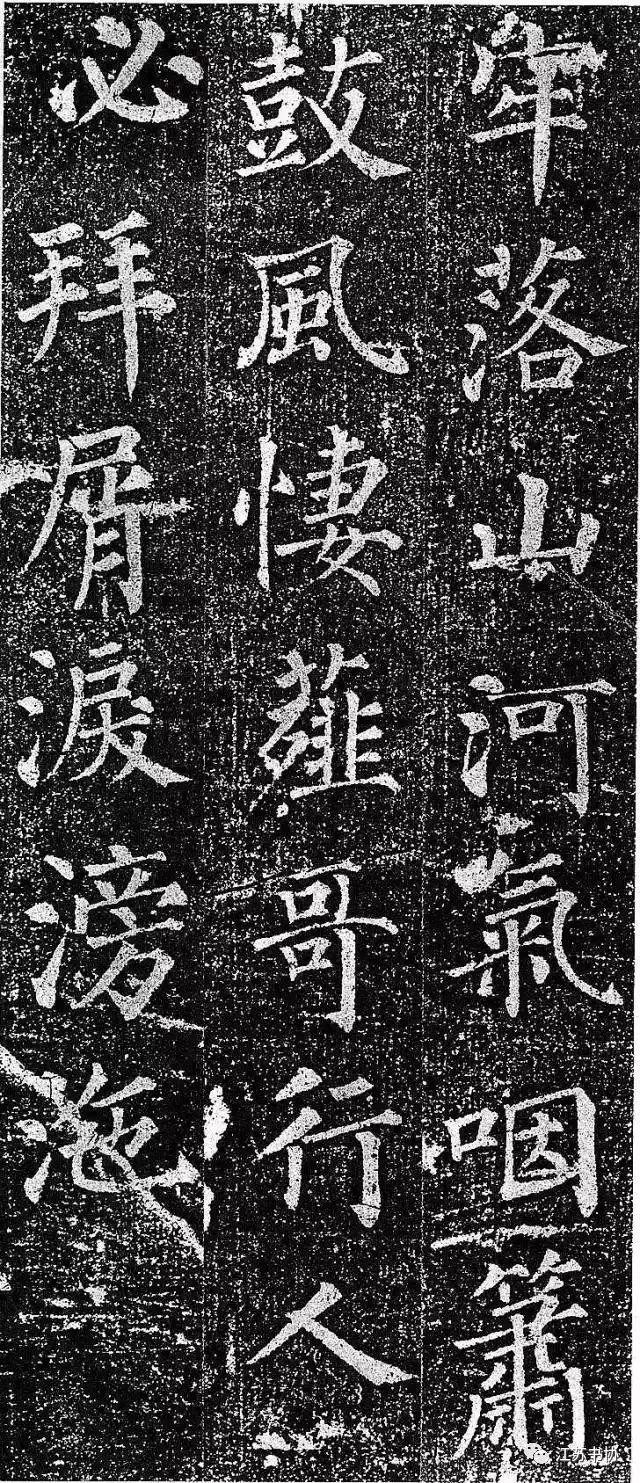 牢落山河氣咽簫
鼓風悽薤哥行人
必拜屑淚滂沲
江苏书协